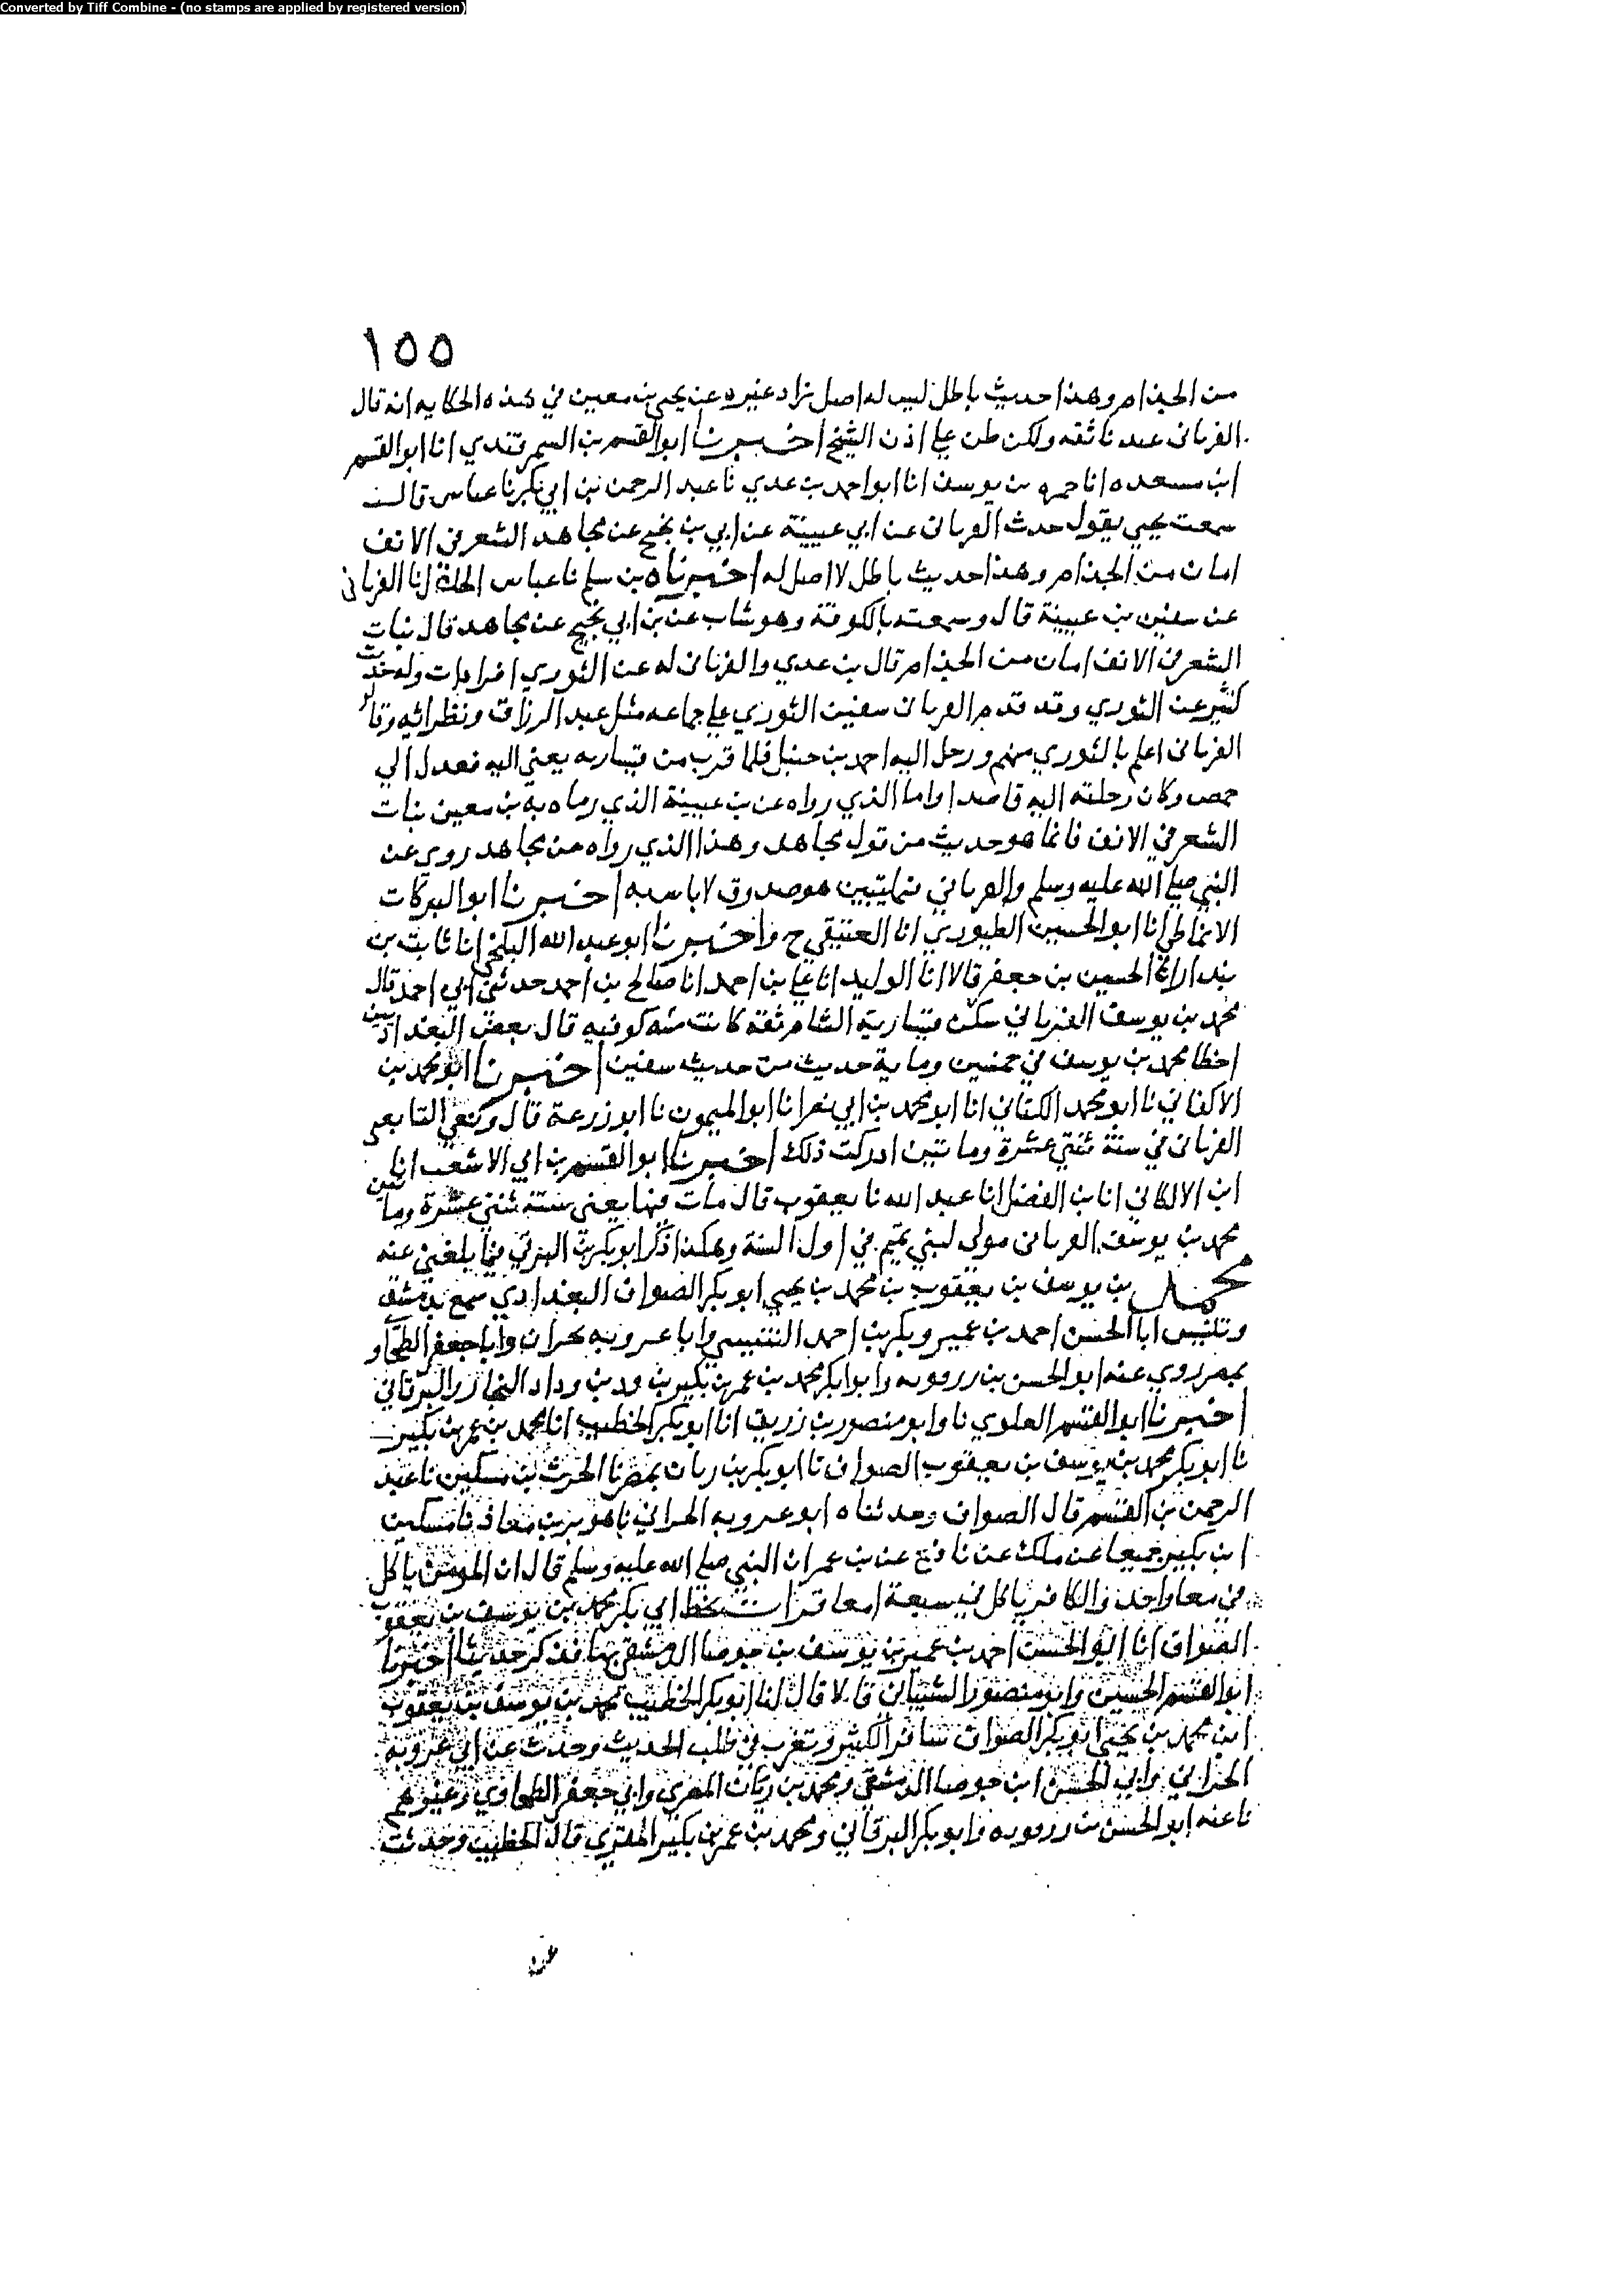 Converted by Tiff Combine - (no stamps are applied by registered version)
١٥٥
من الجذام وهذا حديث باطل ليس له اصل زاد غيره عن يحيى بن معين في هذه الحكايه انه قال
الفريابى عندنا ثقه ولكن طن علي اذن الشيخ اخبرنا ابو القسم بن السمرقندي انا ابو القسم
ابن مسعده انا حمزه بن يوسف انا ابو احمد بن عدي نا عبد الرحمن بن ابي بكر نا عباس قال
سمعت يحيى يقول حدث الفريابى عن ابي عيينة عن ابي بن نجيح عن مجاهد الشعر في الانف
امان من الجذام وهذا حديث باطل لا اصل له اخبرناه بن سلم نا عباس الخلال نا الفريابى
عن سفين بن عيينة قال وسمعته بالكوفة وهو شاب عن بن ابي نجيح عن مجاهد قال نبات
الشعر في الانف امان من الجذام قال بن عدي والفريابى له عن الثوري افرادات وله حديث
كثير عن الثوري وقد قدم الفريابى سفين الثوري علي جماعه مثل عبد الرزاق ونظرائه وقالو
الفريابى اعلم بالثوري منهم ورحل اليه احمد بن حنبل فلما قرب من قيساريه يعني اليه فعدل الي
حمص وكان رحلته اليه قاصدا واما الذي رواه عن بن عيينة الذي رماه به بن معين نبات
الشعر في الانف فانما هو حديث من قول مجاهد وهذا الذي رواه من مجاهد روي عن
النبي صلي الله عليه وسلم والفريابي فيما يتبين هو صدوق لا باس به اخبرنا ابو البركات
الانماطي انا ابو الحسين الطيوري انا العتيقي ح واخبرنا ابو عبد الله البلخي انا ثابت بن
بندار انا الحسين بن جعفر قالا انا الوليد انا علي بن احمد انا صالح بن احمد حدثني ابي احمد قال
محمد بن يوسف الفريابي سكن قيسارية الشام ثقه كانت سنه كوفيه قال بعض البغداديين
اخطا محمد بن يوسف في خمسين وماية حديث من حديث سفين اخبرنا ابو محمد بن
الاكفاني نا ابو محمد الكتاني انا ابو محمد بن ابي نصر انا ابو الميمون نا ابو زرعة قال ونعي
الفريابى في سنة ثنتي عشرة ومايتين ادركت ذلك اخبرنا ابو القسم بن ابي الاشعب انا
ابن الالكاني انا بن الفضل انا عبد الله نا يعقوب قال مات فيها يعني سنة ثنتي عشرة ومايتين
محمد بن يوسف الفريابى مولي لبني تميم في اول السنة وهكذا ذكر ابو بكر بن البرقي فيما بلغني عنه
محمد بن يوسف بن يعقوب بن محمد بن يحيي ابو بكر الصواف البغدادي سمع بدمشق
وتنيس ابا الحسن احمد بن عمير وبكر بن احمد التنيسي وابا عروبه بحران وابا جعفر الطحاو
بمصر روي عنه ابو الحسن بن رزقويه وابو بكر محمد بن عمر بن بكير بن ود بن وداد النجار والبرقاني
اخبرنا ابو القسم العلوي نا وابو منصور بن زريق انا ابو بكر الخطيب انا محمد بن عمر بن بكير
نا ابو بكر محمد بن يوسف بن يعقوب الصواف نا ابو بكر بن ريان بمصر نا الحرث بن مسكين نا عبد
الرحمن بن القسم قال الصواف وحدثناه ابو عروبه الحراني نا هوبر بن معاذ نا مسكين
ابن بكير جميعا عن ملك عن نافع عن بن عمر ان النبي صلي الله عليه وسلم قال ان المومن ياكل
في معا واحد والكافر ياكل في سبعة امعا قرات بخط ابي بكر محمد بن يوسف بن يعقوب
الصواف انا ابو الحسن احمد بن عمير بن يوسف بن جوصا الدمشقي بها فذكر حديثا اخبرنا
ابو القسم الحسين وابو منصور الشيباني قالا قال لنا ابو بكر الخطيب محمد بن يوسف بن يعقوب
ابن محمد بن يحيي ابو بكر الصواف سافر الكثير وتغرب في طلب الحديث وحدث عن ابي عروبه
الحراني وابي الحسن ابن جوصا الدمشقي ومحمد بن ريان المصري وابي جعفر الطحاوي وغيرهم
نا عنه ابو الحسن بن رزقويه وابو بكر البرقاني ومحمد بن عمر بن بكير المقري قال الخطيب وحدثت